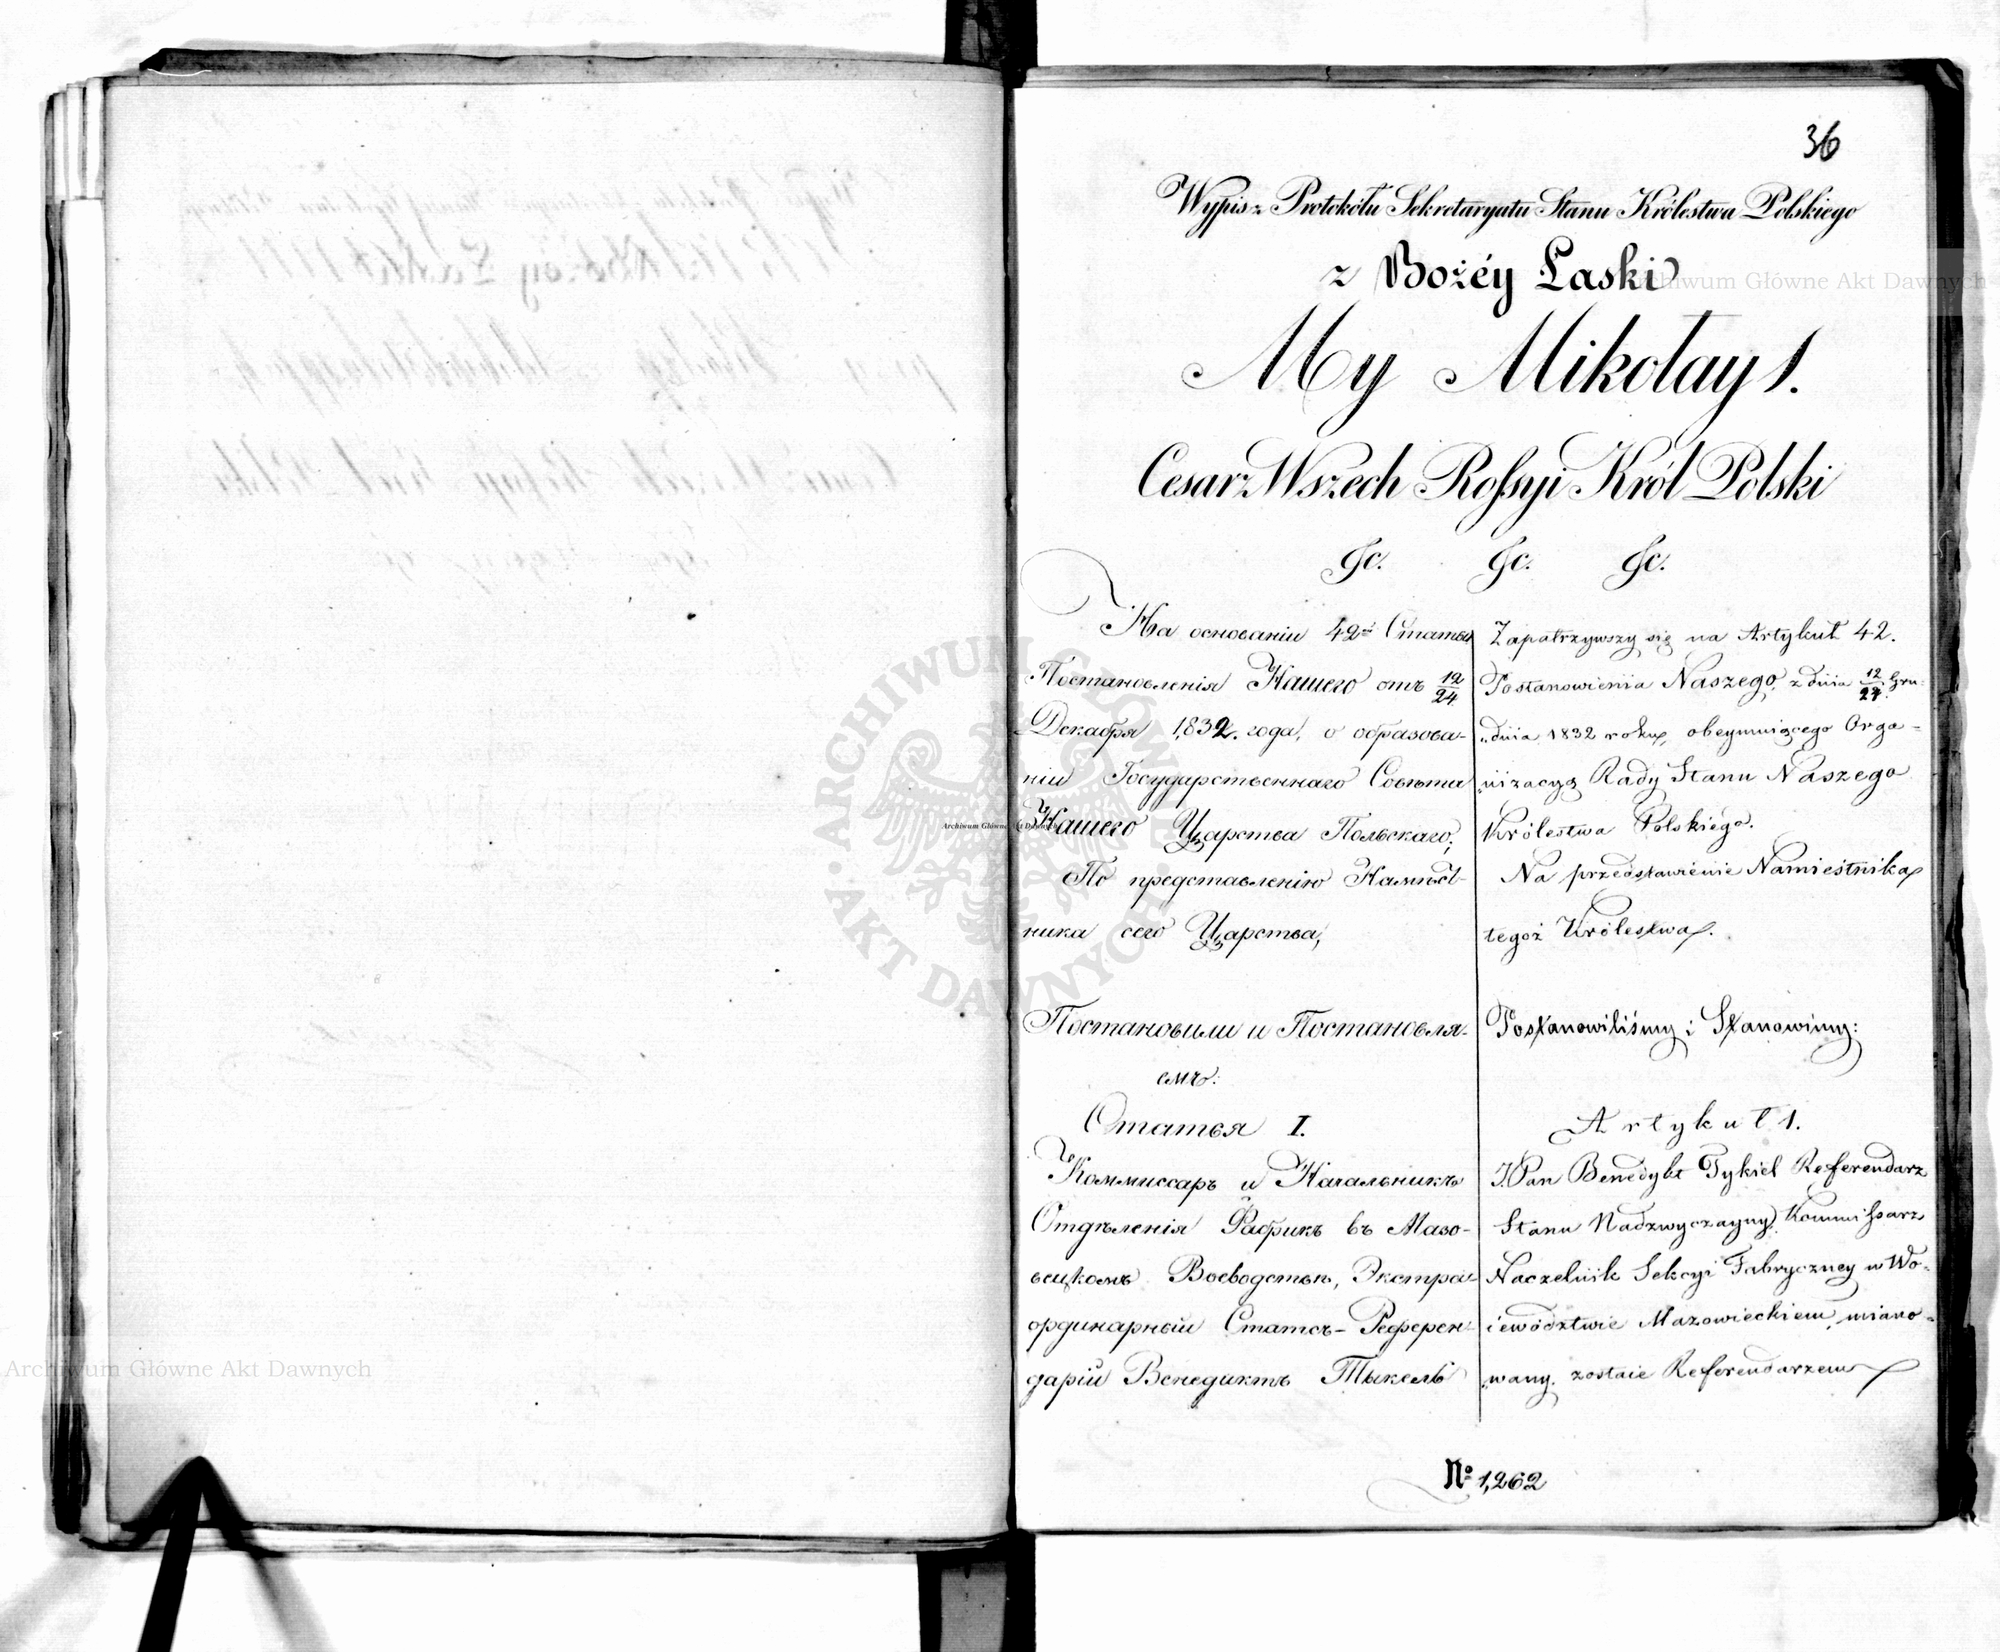 36
Wypis z Protokółu Sekretaryatu Stanu Królestwa Polskiego
z Bożéy Łaski
My Mikołay 1.
Cesarz Wszech Rossyi Król Polski
&c. &c. &c.
На основаніи 42й Статьи
Постановленія Нашего отъ 12/24
Декабря 1832. года, о образова-
ніи Государственнаго Совѣта
Нашего Царства Польскаго;
По представленію Намѣст-
ника сего Царства,
Постановили и Постановля-
емъ:
Статья I.
Коммиссаръ и Начальникъ
Отдѣленія Фабрикъ въ Мазо-
вецкомъ Воеводствѣ, Экстра-
ординарный Статсъ-Референ-
дарій Бенедиктъ Тыкель
Zapatrzywszy się na Artykuł 42.
Postanowienia Naszego, z dnia 12/24 Gru-
„dnia 1832 roku, obeymuiącego Orga-
„nizacyą Rady Stanu Naszego
Królestwa Polskiego.
Na przedstawienie Namiestnika
tegoż Królestwa.
Postanowiliśmy i Stanowimy:
Artykuł 1.
J. Pan Benedykt Tykiel Referendarz
Stanu Nadzwyczayny, Kommissarz
Naczelnik Sekcyi Fabryczney w Wo-
iewództwie Mazowieckiem, miano-
„wany zostaie Referendarzem
№ 1,262
Archiwum Główne Akt Dawnych
Archiwum Główne Akt Dawnych
Archiwum Główne Akt Dawnych
ARCHIWUM GŁÓWNE AKT DAWNYCH